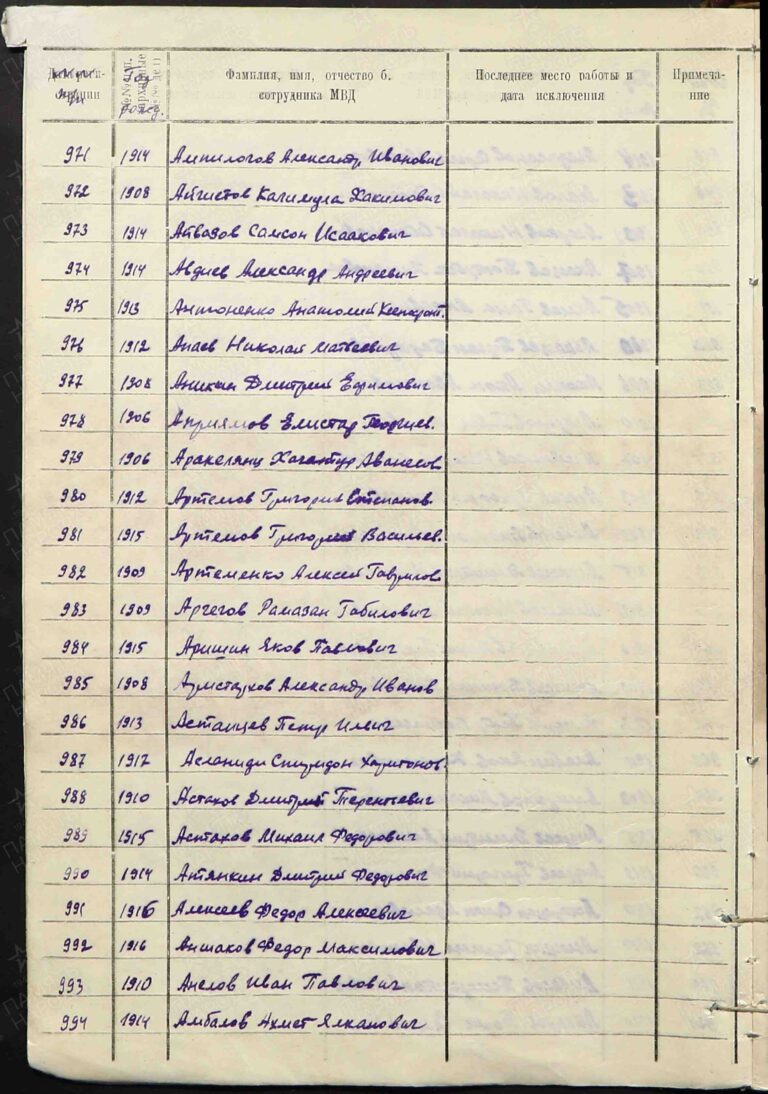 Фамилия, имя, отчество б. сотрудника МВД
Последнее место работы и дата исключения
Примечание
971 1914 Ампилогов Александр Иванович
972 1908 Айгистов Калимула Хакимович
973 1914 Айвазов Самсон Исаакович
974 1914 Авдиев Александр Андреевич
975 1913 Антоненко Анатолий
976 1912 Апаев Николай Матвеевич
977 1908 Аникин Дмитрий Ефимович
978 1906 Априямов Елистар Георгиев.
979 1906 Аракелянц Хачантур Аванесов
980 1912 Артемов Григорий Степанов.
981 1915 Артемов Григорий Васильев.
982 1909 Артеменко Алексей Гаврилов
983 1909 Аргегов Рамазан Габилович
984 1915 Аришин Яков Павлович
985 1908 Александр Иванов
986 1913 Астанцев Петр Ильич
987 1912 Асланиди Спиридон Харитонов.
988 1910 Астахов Дмитрий Терентьевич
989 1915 Астахов Михаил Федорович
990 1914 Антянкин Дмитрий Федорович
991 1916 Алексеев Федор Алексеевич
992 1916 Аншаков Федор Максимович
993 1910 Анелов Иван Павлович
994 1914 Амбалов Ахмет Ялканович